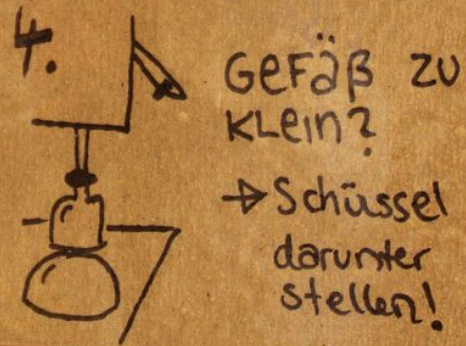 4.
Gefäß zu
klein?
→ Schüssel
darunter
stellen!